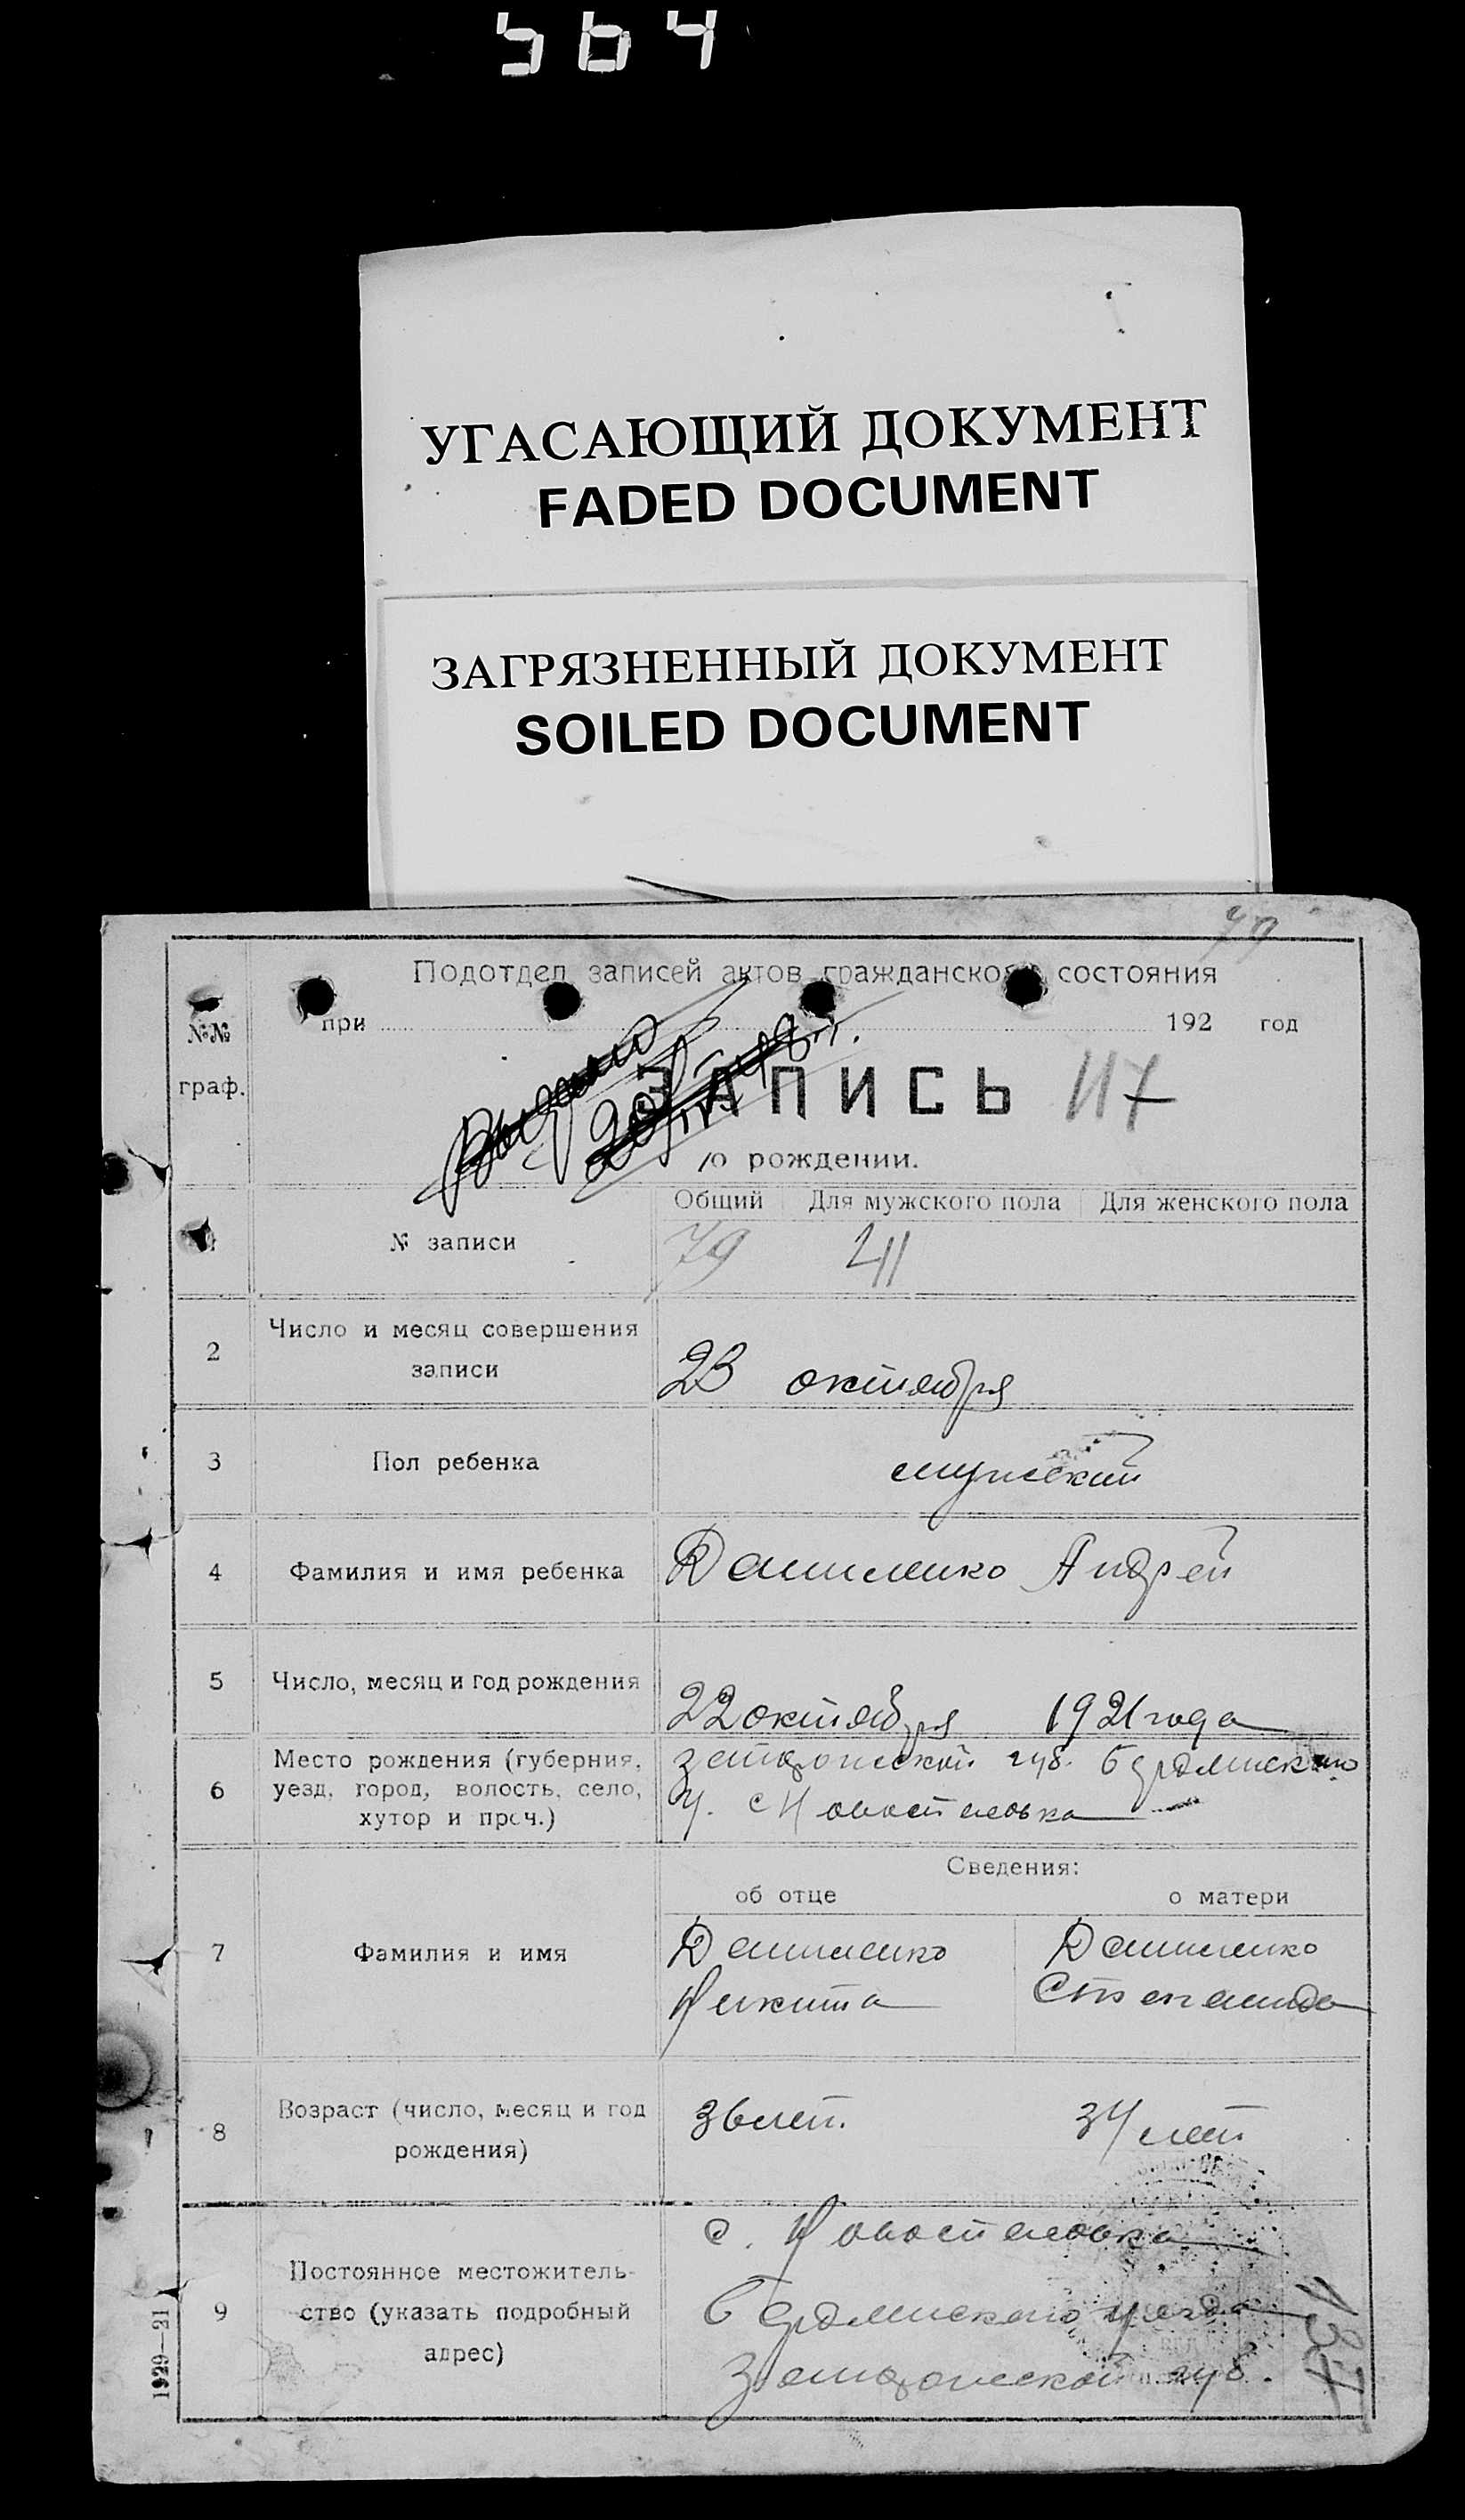 564
УГАСАЮЩИЙ ДОКУМЕНТ
FADED DOCUMENT
ЗАГРЯЗНЕННЫЙ ДОКУМЕНТ
SOILED DOCUMENT
Подотдел записей актов гражданского состояния
№№ граф.
при 192 год
ЗАПИСЬ 117
о рождении.
Общий Для мужского пола Для женского пола
№ записи 79 41
2 Число и месяц совершения
записи
23 октября
3 Пол ребенка мужский
4 Фамилия и имя ребенка Даниленко Андрей
5 Число, месяц и год рождения 22 октября 1921 года
6 Место рождения (губерния,
уезд, город, волость, село,
хутор и проч.)
Запорожской губ. Бердянского
у. с Новоспасовка
Сведения:
об отце о матери
7 Фамилия и имя
Даниленко Даниленко
Никита Степанида
8 Возраст (число, месяц и год
рождения)
36 лет. 34 лет
9 Постоянное местожитель-
ство (указать подробный
адрес)
с. Новоспасовка
Бердянского уезда
Запорожской губ.
137
1929—21